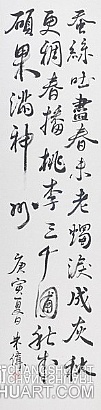 蚕絲吐盡春未老燭淚成灰秋
更稠春播桃李三千圃秋来
碩果满神州
庚寅夏日朱